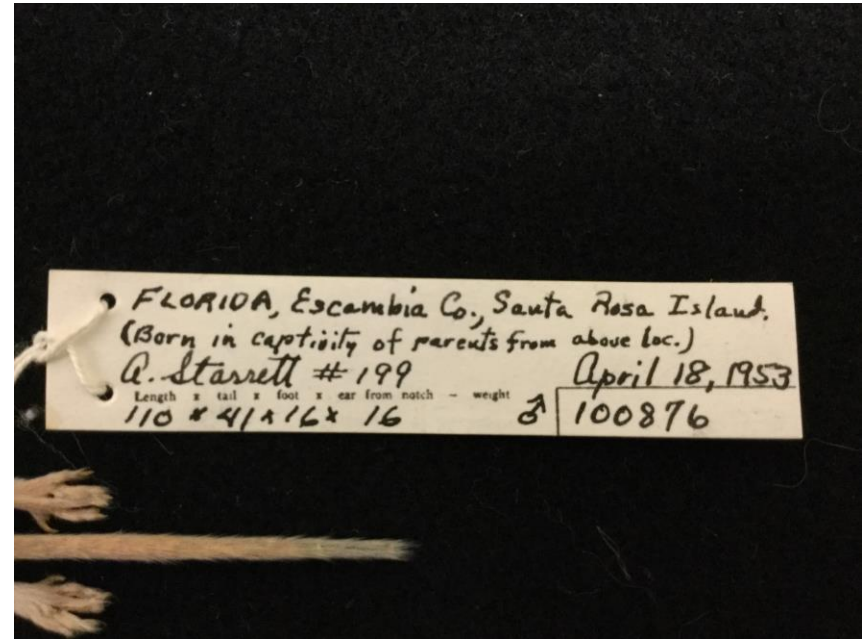 FLORIDA, Escambia Co., Santa Rosa Island.
(Born in captivity of parents from above loc.)
A. Starrett # 199 April 18, 1953
Length x tail x foot x ear from notch – weight
110 x 41 x 16 x 16 ♂ 100876